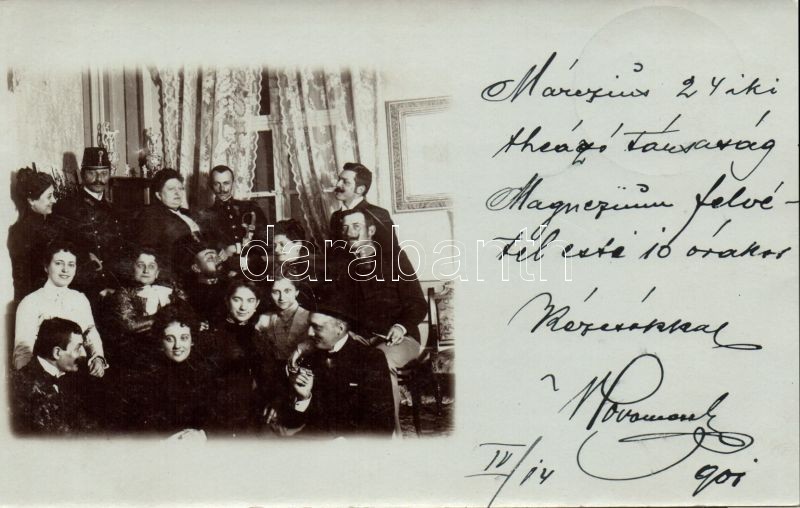 Márczius 24 iki
theázó Társaság
Magnezium felvé-
tél esté 10 órakor
Kézcsókkal
IV/14 901
darabanth.com